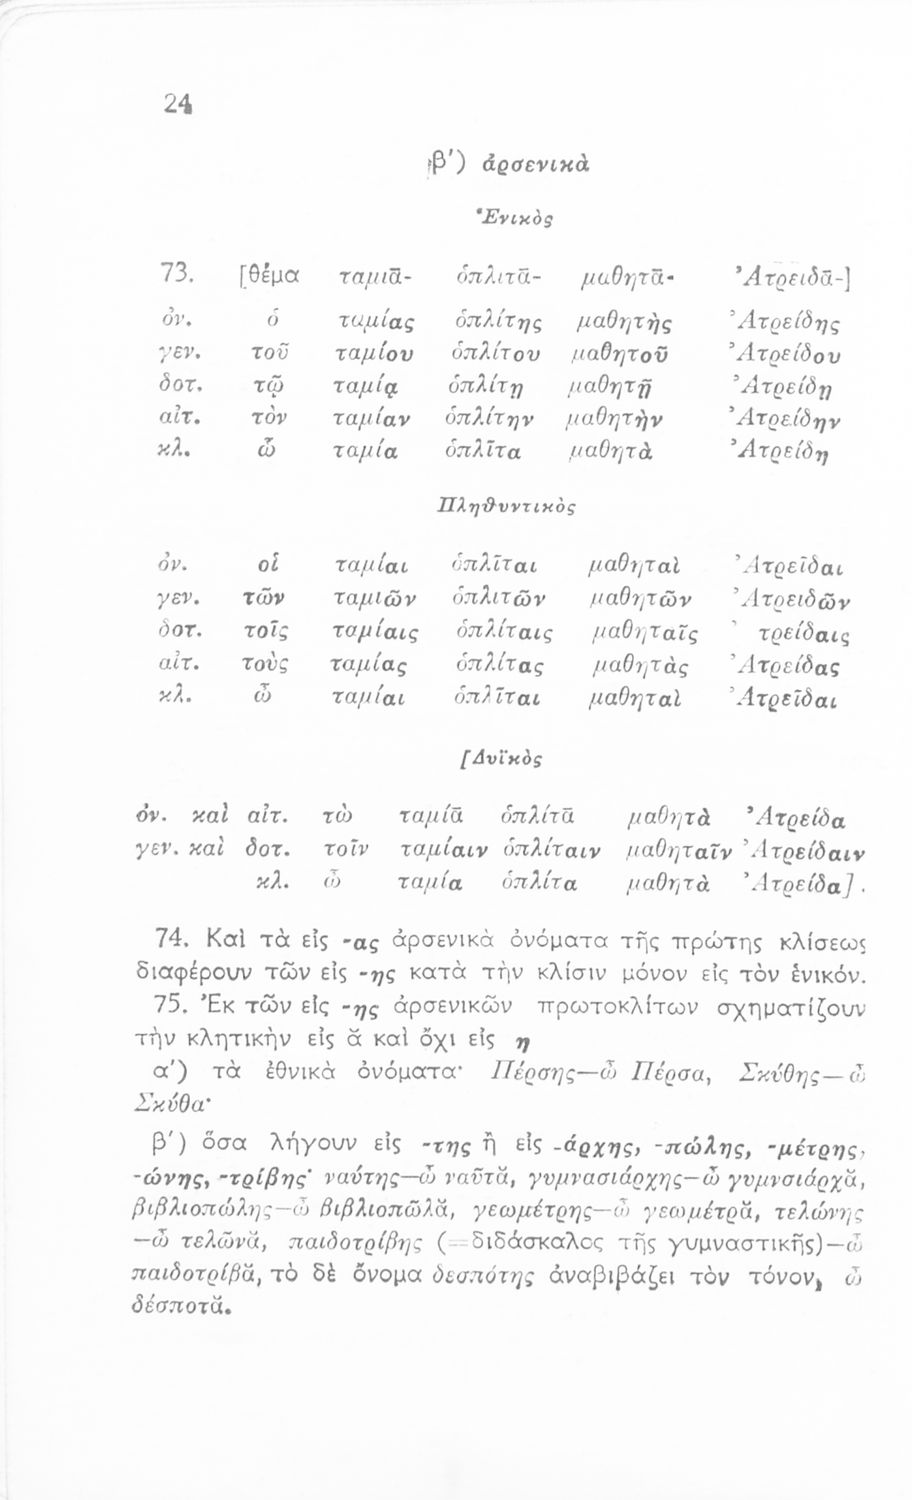 24
β') ἀρσενικὰ
Ἑνικὸς
73. [θέμα ταμιᾱ- ὁπλιτᾱ- μαθητᾱ- Ἀτρειδᾱ-]
ὀν. ὁ ταμίας ὁπλίτης μαθητὴς Ἀτρείδης
γεν. τοῦ ταμίου ὁπλίτου μαθητοῦ Ἀτρείδου
δοτ. τῷ ταμίᾳ ὁπλίτῃ μαθητῇ Ἀτρείδῃ
αἰτ. τὸν ταμίαν ὁπλίτην μαθητὴν Ἀτρείδην
κλ. ὦ ταμία ὁπλῖτα μαθητὰ Ἀτρείδη
Πληθυντικὸς
ὀν. οἱ ταμίαι ὁπλῖται μαθηταὶ Ἀτρεῖδαι
γεν. τῶν ταμιῶν ὁπλιτῶν μαθητῶν Ἀτρειδῶν
δοτ. τοῖς ταμίαις ὁπλίταις μαθηταῖς ᾿ τρείδαις
αἰτ. τοὺς ταμίας ὁπλίτας μαθητὰς Ἀτρείδας
κλ. ὦ ταμίαι ὁπλῖται μαθηταὶ Ἀτρεῖδαι
[Δυϊκὸς
ὀν. καὶ αἰτ. τὼ ταμίᾱ ὁπλίτᾱ μαθητὰ Ἀτρείδα
γεν. καὶ δοτ. τοῖν ταμίαιν ὁπλίταιν μαθηταῖν Ἀτρείδαιν
κλ. ὦ ταμία ὁπλίτα μαθητὰ Ἀτρείδα].
74. Καὶ τὰ εἰς -ας ἀρσενικὰ ὀνόματα τῆς πρώτης κλίσεως
διαφέρουν τῶν εἰς -ης κατὰ τὴν κλίσιν μόνον εἰς τὸν ἑνικόν.
75. Ἐκ τῶν εἰς -ης ἀρσενικῶν πρωτοκλίτων σχηματίζουν
τὴν κλητικὴν εἰς ᾰ καὶ ὄχι εἰς η
α') τὰ ἐθνικὰ ὀνόματα· Πέρσης—ὦ Πέρσα, Σκύθης—ὦ
Σκύθα·
β') ὅσα λήγουν εἰς -της ἢ εἰς -άρχης, -πώλης, -μέτρης,
-ώνης, -τρίβης· ναύτης—ὦ ναῦτᾰ, γυμνασιάρχης—ὦ γυμνσιάρχᾰ,
βιβλιοπώλης—ὦ βιβλιοπῶλᾰ, γεωμέτρης—ὦ γεωμέτρᾰ, τελώνης
—ὦ τελῶνᾰ, παιδοτρίβης (=διδάσκαλος τῆς γυμναστικῆς)—ὦ
παιδοτρίβᾰ, τὸ δὲ ὄνομα δεσπότης ἀναβιβάζει τὸν τόνον, ὦ
δέσποτᾰ.